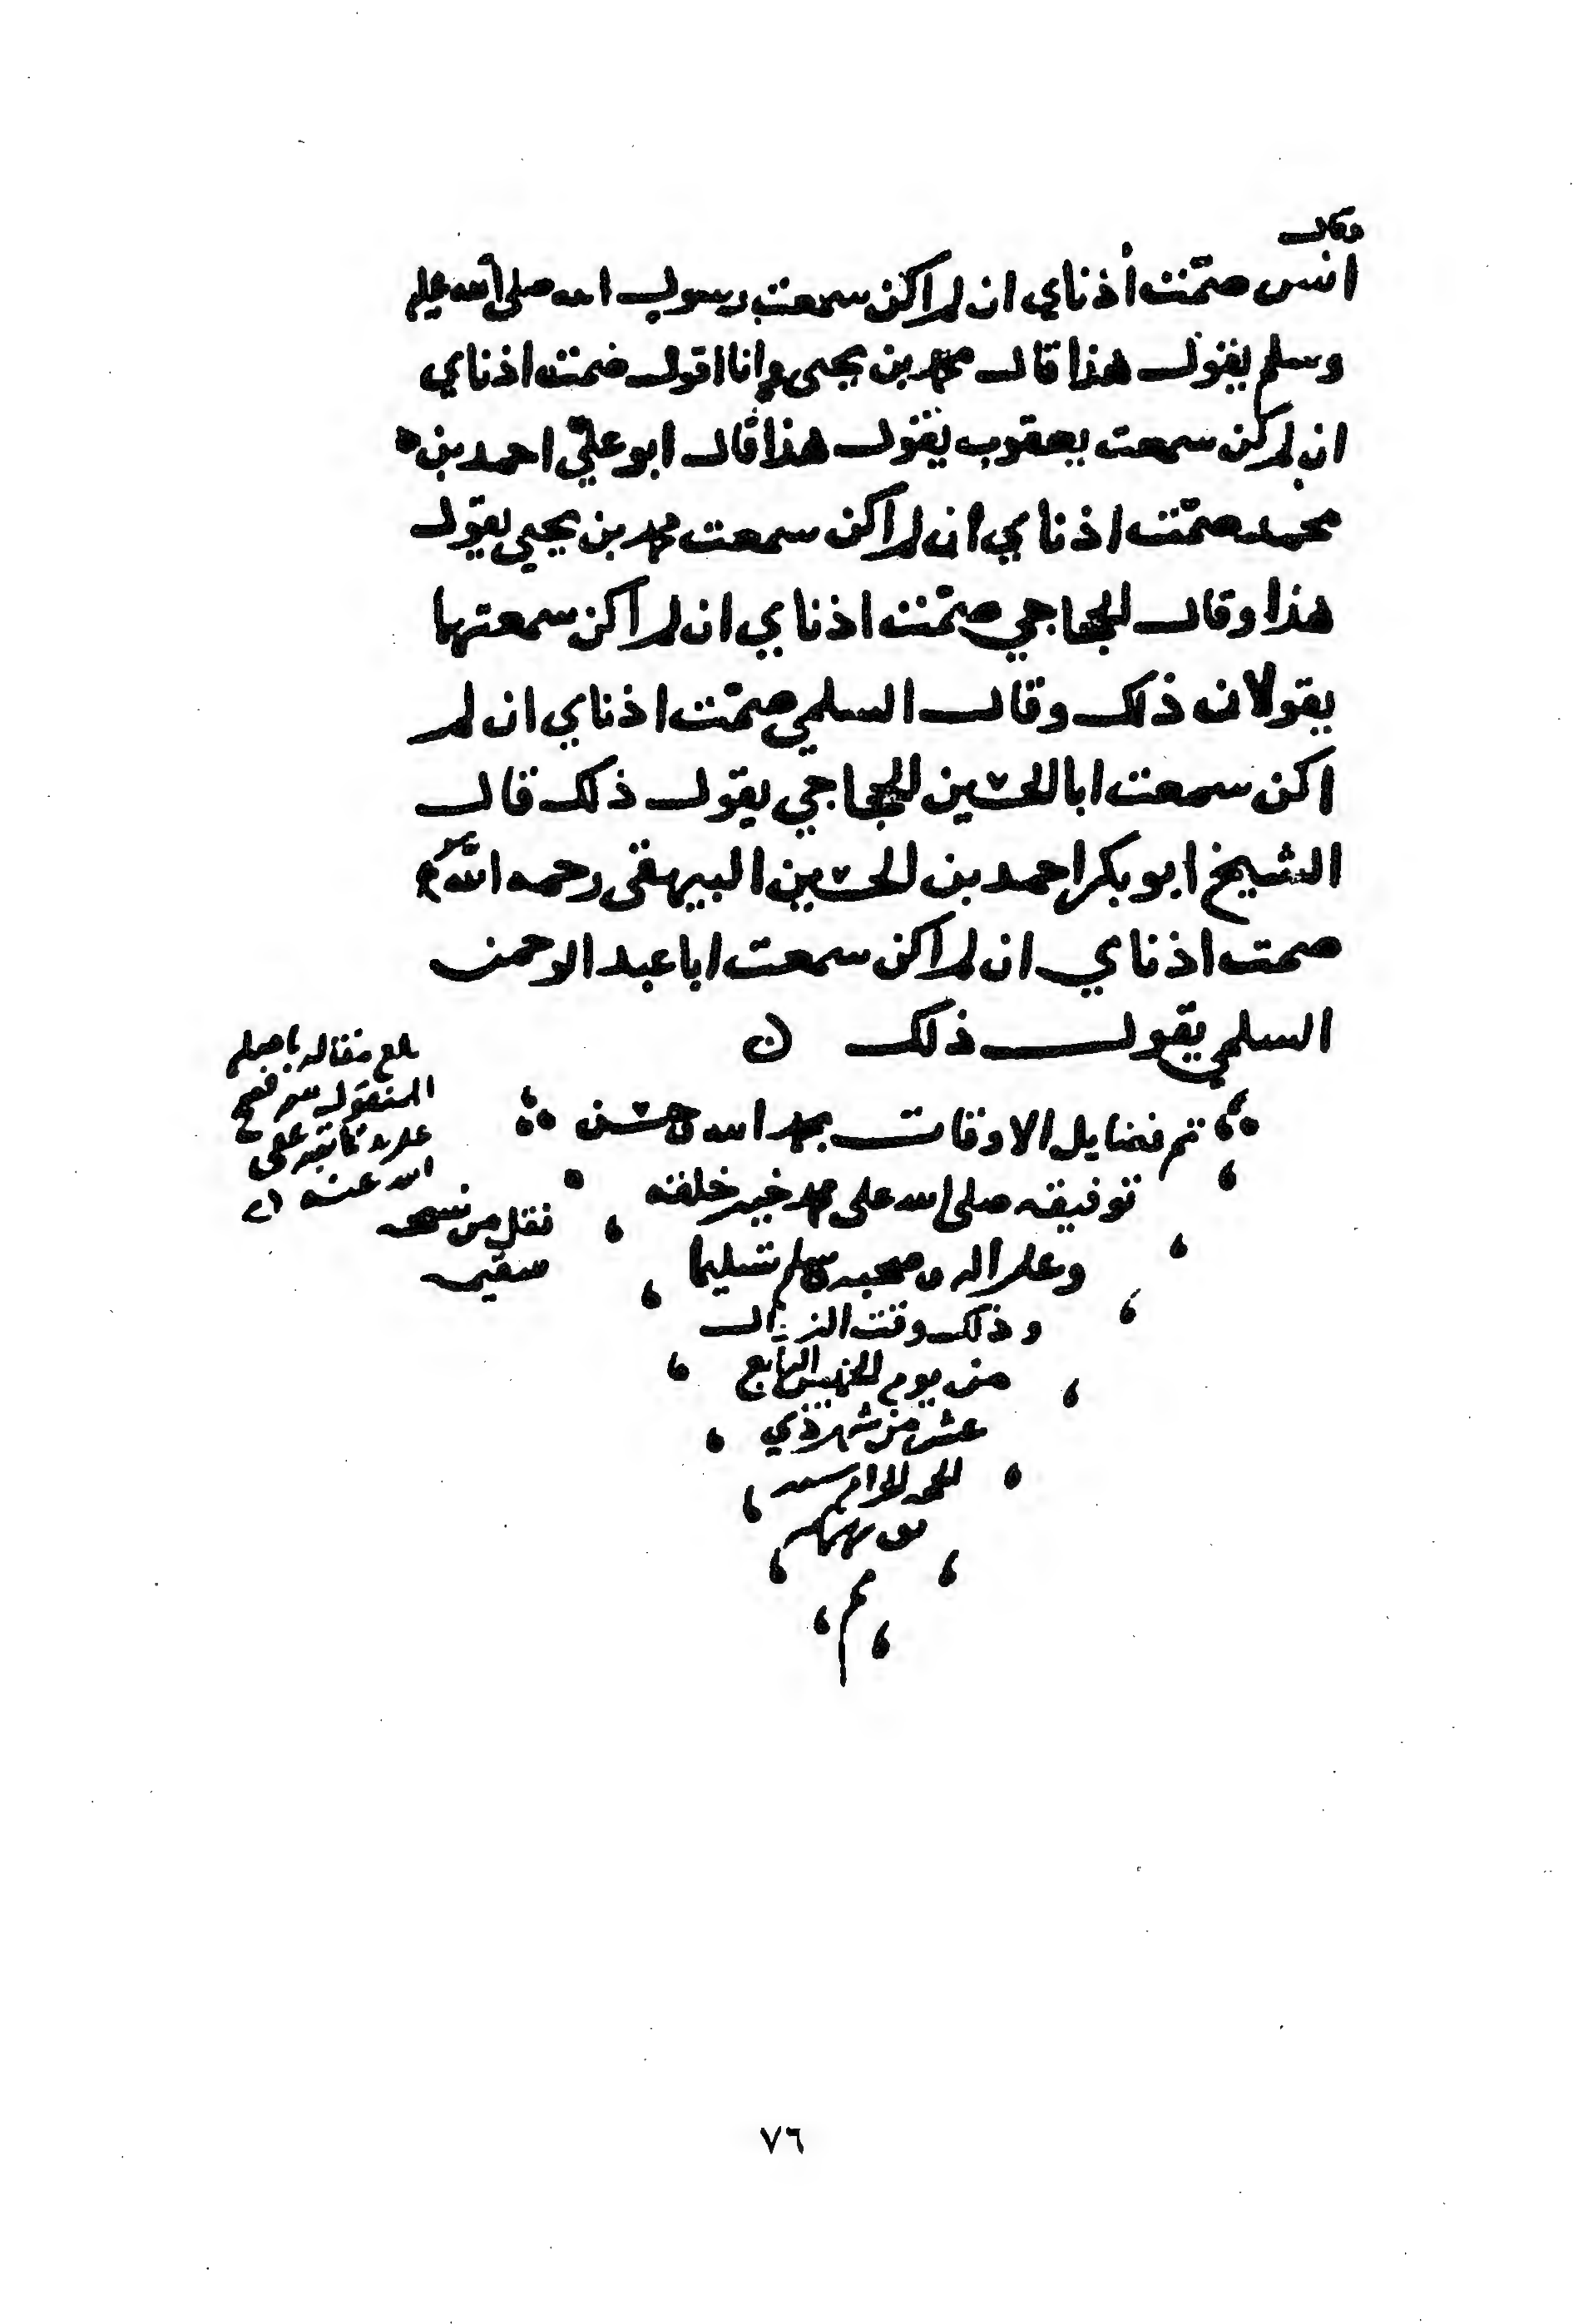 وقال
انس صمّت أذناي ان لم اكن سمعت رسول الله صلى الله عليه
وسلم يقول هذا قال محمد بن يحيى وانا اقول صمت اذناي
ان لم اكن سمعت يعقوب يقول هذا قال ابو عليّ احمد بن
محمد صمّت اذناي ان لم اكن سمعت محمد بن يحيى يقول
هذا وقال الحجاجي صمّت اذناي ان لم اكن سمعتهما
يقولان ذلك وقال السلمي صمّت اذناي ان لم
اكن سمعت ابا الحسين الحجاجي يقول ذلك قال
الشيخ ابو بكر احمد بن الحسين البيهقي رحمه الله
صمت اذناي ان لم اكن سمعت ابا عبد الرحمن
السلمي يقول ذلك ن
تم فضايل الاوقات بحمد الله وحسن
توفيقه صلى الله على محمد خير خلقه
وعلى اله وصحبه وسلم تسليما
وذلك وقت الزوال
من يوم الخميس الرابع
عشر من شهر ذي
م
بلغ مقاله باصله
المنقول منه فصح
الله عنه
نقل من نسخه
سقيمه
٧٦